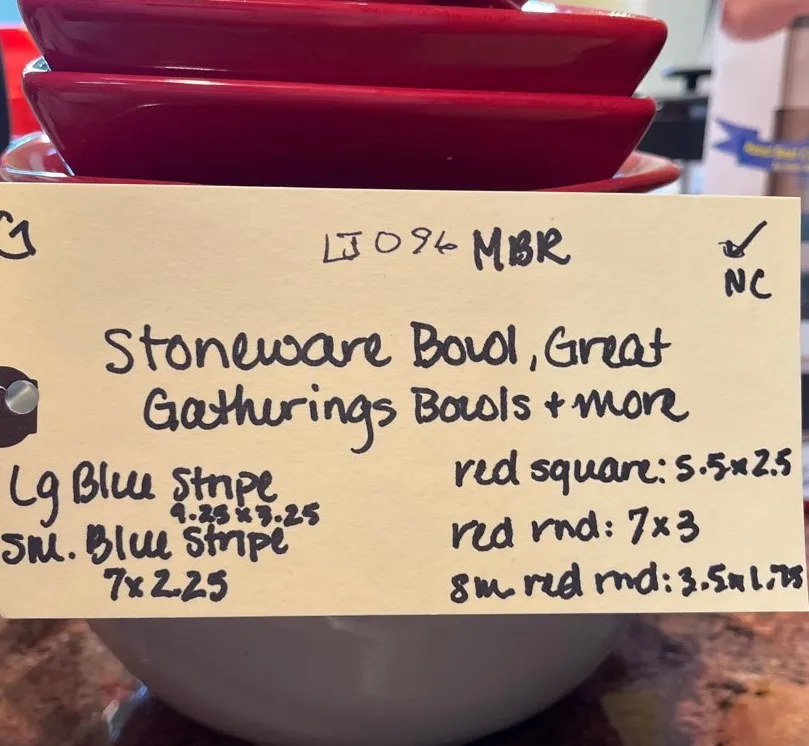 LJ096 MBR
✓
NC
Stoneware Bowl, Great
Gatherings Bowls + more
Lg Blue Stripe
9.25 x 3.25
sm. Blue Stripe
7x 2.25
red square: 5.5x2.5
red rnd: 7x3
sm red rnd: 3.5x1.75